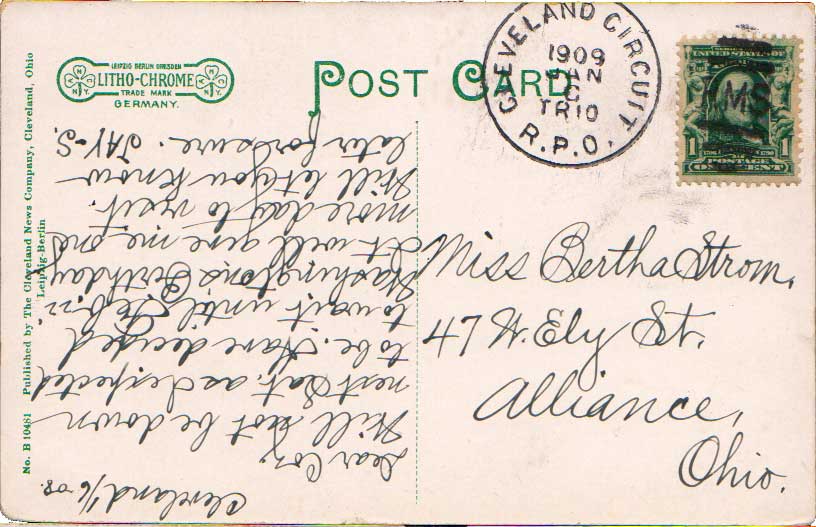 LEIPZIG BERLIN DRESDEN
LITHO-CHROME
TRADE MARK
GERMANY.
POST CARD
CLEVELAND CIRCUIT
1909
JAN
6
TR10
R.P.O.
MS
UNITED STATES OF
1 1
POSTAGE
ONE CENT
Miss Bertha Strom,
47 W. Ely St.
Alliance,
Ohio.
Cleveland 1/6-08.
Dear Coz,
Will not be down
next Sat. as I expected
to be. Have decided
to wait until Feb. 22
Washington's Birthday
It will give me one
more day to visit.
Will let you know
later for sure. JAY-S.
No. B 10481 Published by The Cleveland News Company, Cleveland, Ohio
Leipzig-Berlin